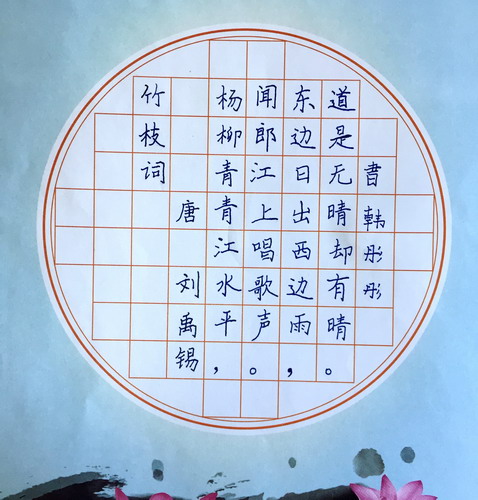 竹枝词
唐 刘禹锡
杨柳青青江水平，
闻郎江上唱歌声。
东边日出西边雨，
道是无晴却有晴。
書 韩彤彤